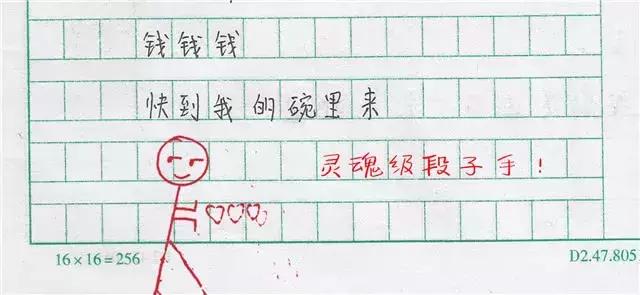 钱钱钱
快到我的碗里来
灵魂级段子手！
16×16=256
D2.47.805